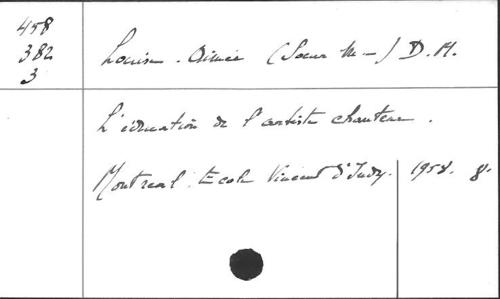 458
382
3
Louise-Aimée (Soeur M—) D.M.
L'éducation de l'artiste chanteur.
Montreal. Ecole Vincent d'Indy. 1958. 8.